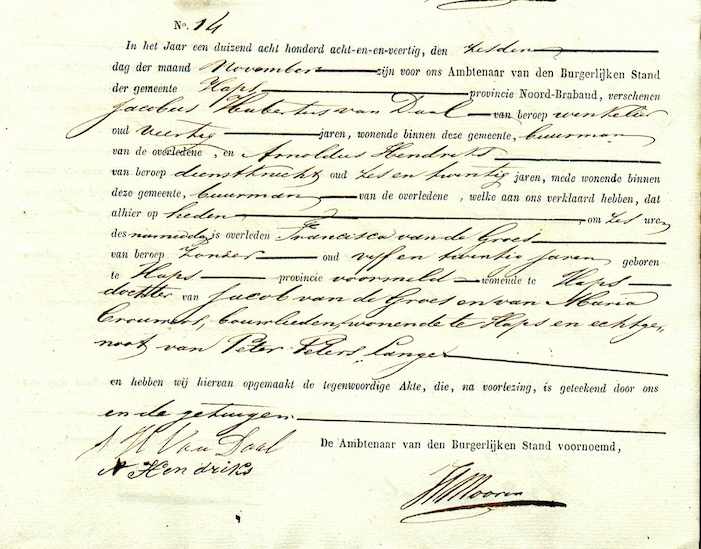 No. 14
In het Jaar een duizend acht honderd acht-en-en-veertig, den zesden
dag der maand November zijn voor ons Ambtenaar van den Burgerlijken Stand
der gemeente Haps provincie Noord-Brabaud, verschenen
Jacobus Hubertus van Daal van beroep winkelier
oud veertig jaren, wonende binnen deze gemeente, buurman
van de overledene, en Arnoldus Hendriks
van beroep dienstknecht oud zes en twintig jaren, mede wonende binnen
deze gemeente, buurman van de overledene, welke aan ons verklaard hebben, dat
alhier op heden, om zes uren
des namiddags is overleden Francisca van de Groes
van beroep zonder oud vyf en twintig jaren geboren
te Haps provincie voormeld wonende te Haps
dochter van Jacob van de Groes en van Maria
bouwlieden, wonende te Haps en echtge-
noot van Peter Peters Langet
en hebben wij hiervan opgemaakt de tegenwoordige Akte, die, na voorlezing, is geteekend door ons
en de getuigen.
J H Van Daal
De Ambtenaar van den Burgerlijken Stand voornoemd,
A Hendriks